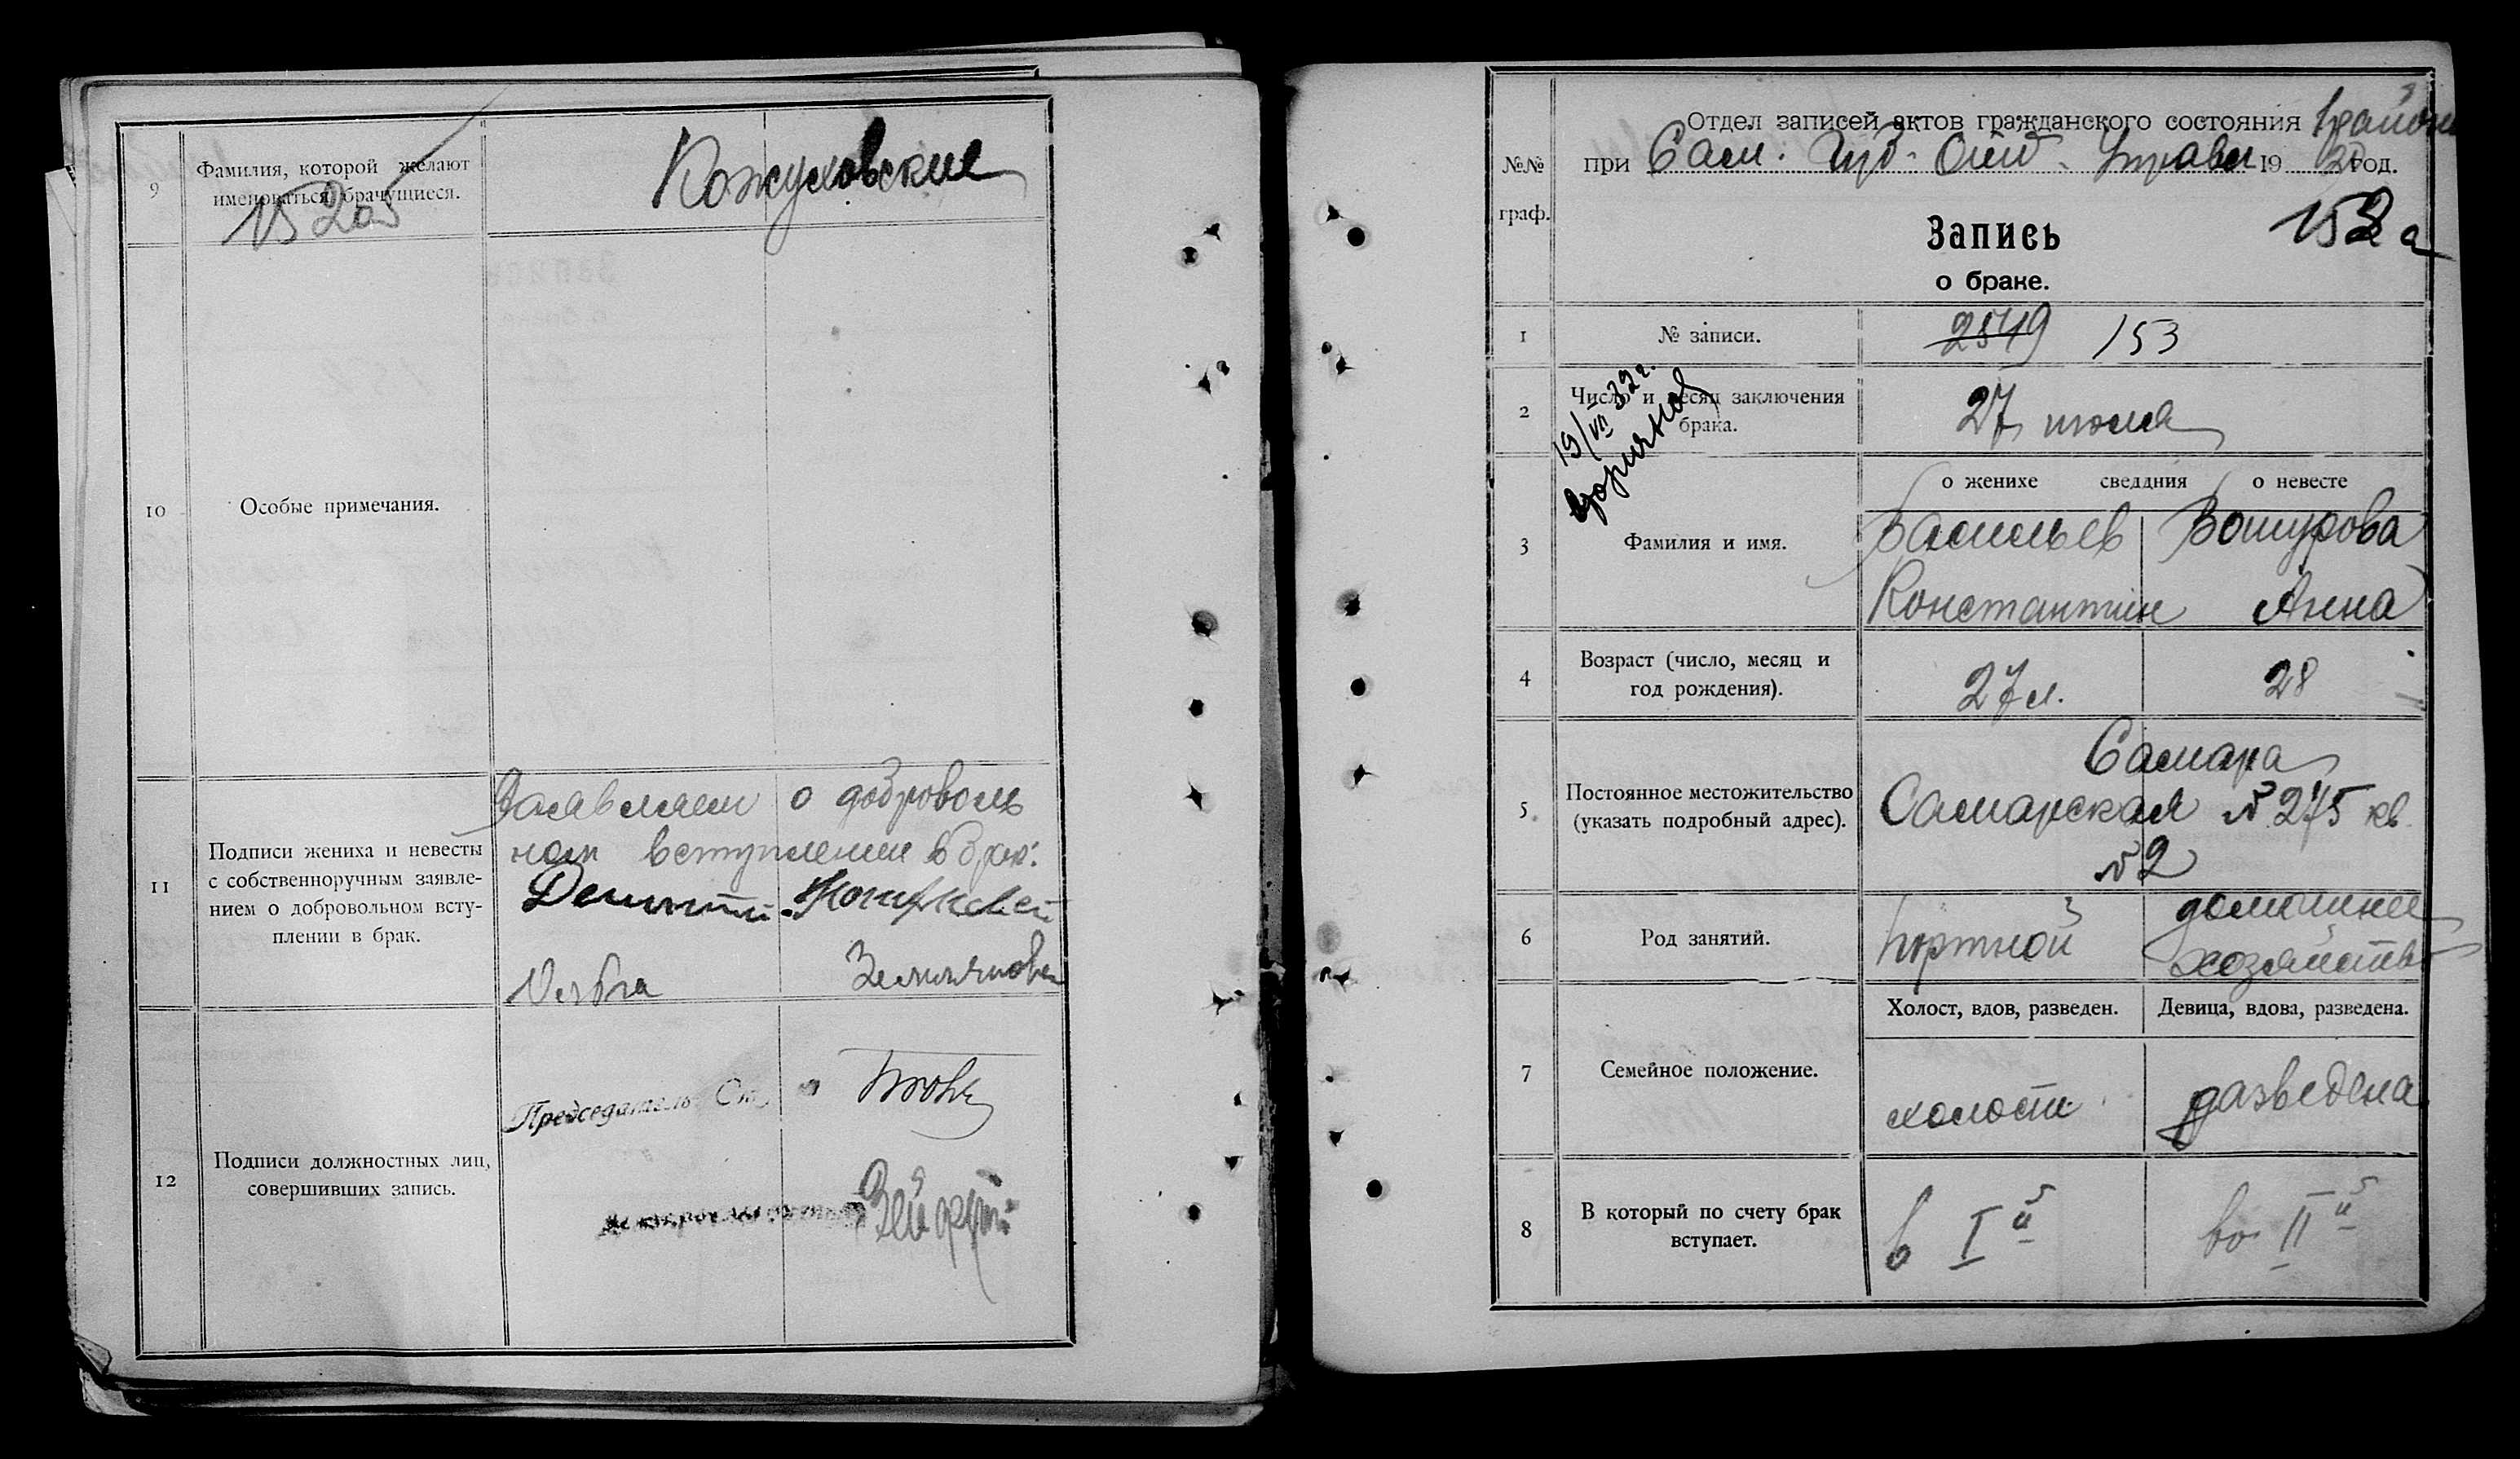 9
Фамилия, которой желают
именоваться брачущиеся.
Кожуховские
10
Особые примечания.
11
Подписи жениха и невесты
с собственноручным заявле-
нием о добровольном всту-
плении в брак.
Заявляем о доброволь
ном вступлении в брак:
Землянова
12
Подписи должностных лиц,
совершивших запись.
Председатель
№№
граф.
Отдел записей актов гражданского состояния
при Сам. Губ. Отд. Управл 1920 год.
Запись
152а
о браке.
1
№ записи.
2549 153
2
Число и месяц заключения
брака.
27 июля
19/VII 32 г.
о женихе сведдния о невесте
3
Фамилия и имя.
Васильев Вошурова
Константин Анна
4
Возраст (число, месяц и
год рождения).
27 л. 28
5.
Постоянное местожительство
(указать подробный адрес).
Самара
Самарская № 275 кв
№ 2
6
Род занятий.
портной
домашнее
хозяйство
7
Семейное положение.
Холост, вдов, разведен. Девица, вдова, разведена.
холост разведена
8
В который по счету брак
вступает.
в I й во II й